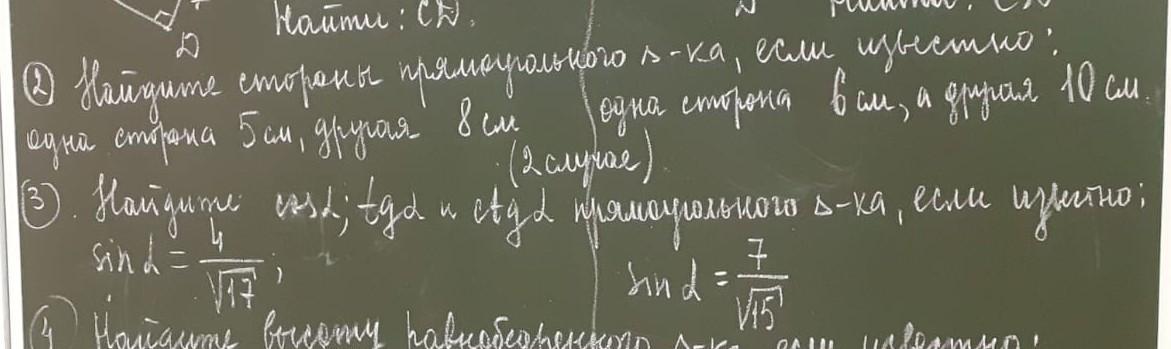 D Найти: CD.
② Найдите стороны прямоугольного Δ-ка, если известно:
одна сторона 5 см, другая 8 см одна сторона 6 см, а другая 10 см.
(2 случае)
③. Найдите cosα; tgα и ctgα прямоугольного Δ-ка, если известно;
sinα = 4/√17; sinα = 7/√15
④ Найдите высоту равнобедренного Δ-ка, если известно: